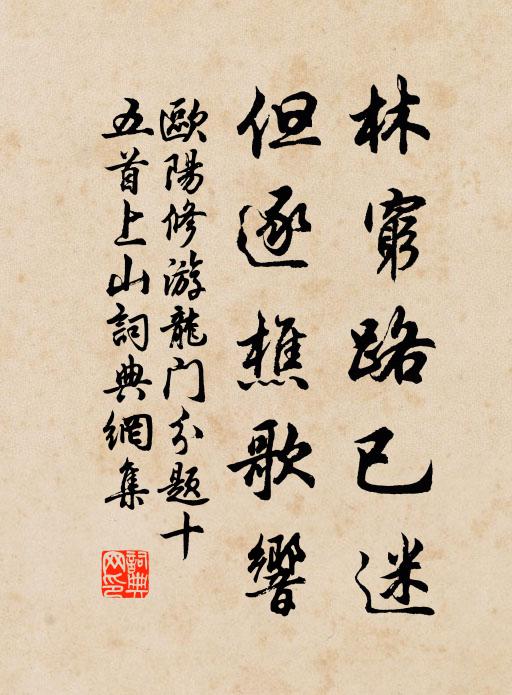 林窮路已迷
但逐樵歌響
歐陽修游龍门分题十
五首上山詞典網集
詞典网印